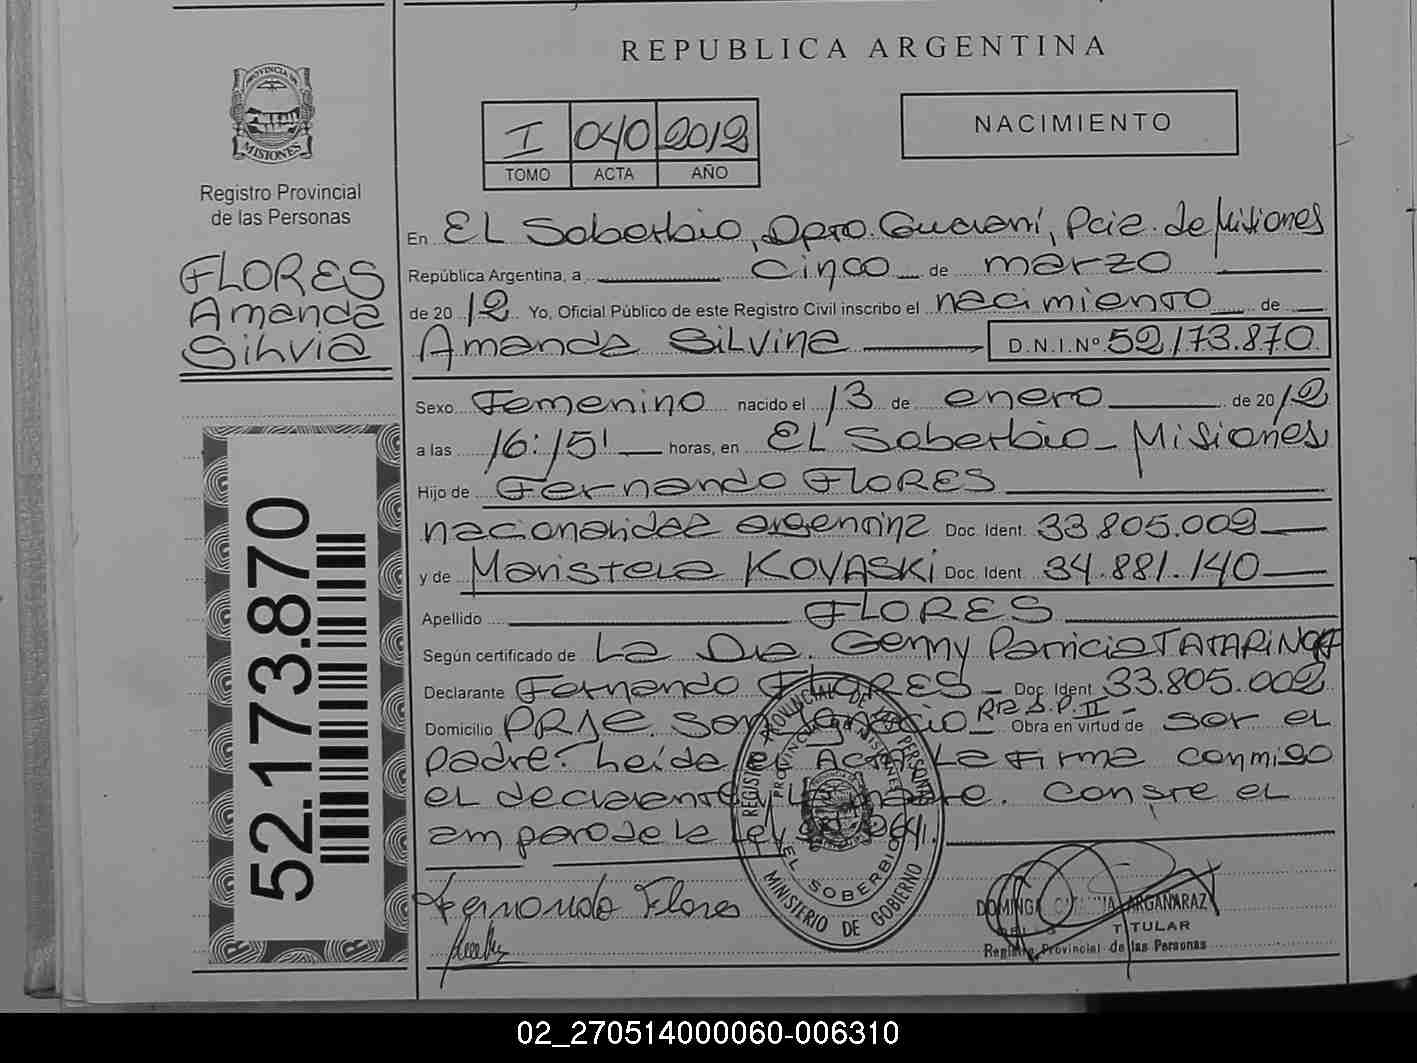 REPUBLICA ARGENTINA
PROVINCIA DE
MISIONES
Registro Provincial
de las Personas
FLORES
Amanda
Silvia
52.173.870
I 040 2012
TOMO ACTA AÑO
NACIMIENTO
En EL Soberbio, Dpto. Guaraní, Pcia. de Misiones
República Argentina, a cinco de marzo
de 2012 Yo, Oficial Público de este Registro Civil inscribo el nacimiento de
Amanda SiLvina D.N.I.Nº 52173.870
Sexo Femenino nacido el 13 de enero de 2012
a las 16:15' horas, en EL Soberbio - Misiones
Hijo de Fernando FLORES
nacionalidad argentina Doc. Ident. 33.805.002
y de Maristela KOVASKi Doc. Ident. 34.881.140
Apellido FLORES
Según certificado de La Dra. Genny Patricia TATARiNOFF
Declarante Fernando FLORES - Doc. Ident. 33.805.002
Domicilio PRJE. San Ignacio - Rta S.P. II - Obra en virtud de ser el
padre. Leída el Acta La firma conmigo
el declarante y la madre. Conste el
amparo de la Ley 26.
REGISTRO PROVINCIAL DE LAS PERSONAS
PROVINCIA DE MISIONES
EL SOBERBIO
MINISTERIO DE GOBIERNO
Fernando Flores
ARGAÑARAZ
TITULAR
Registro Provincial de las Personas
02_270514000060-006310